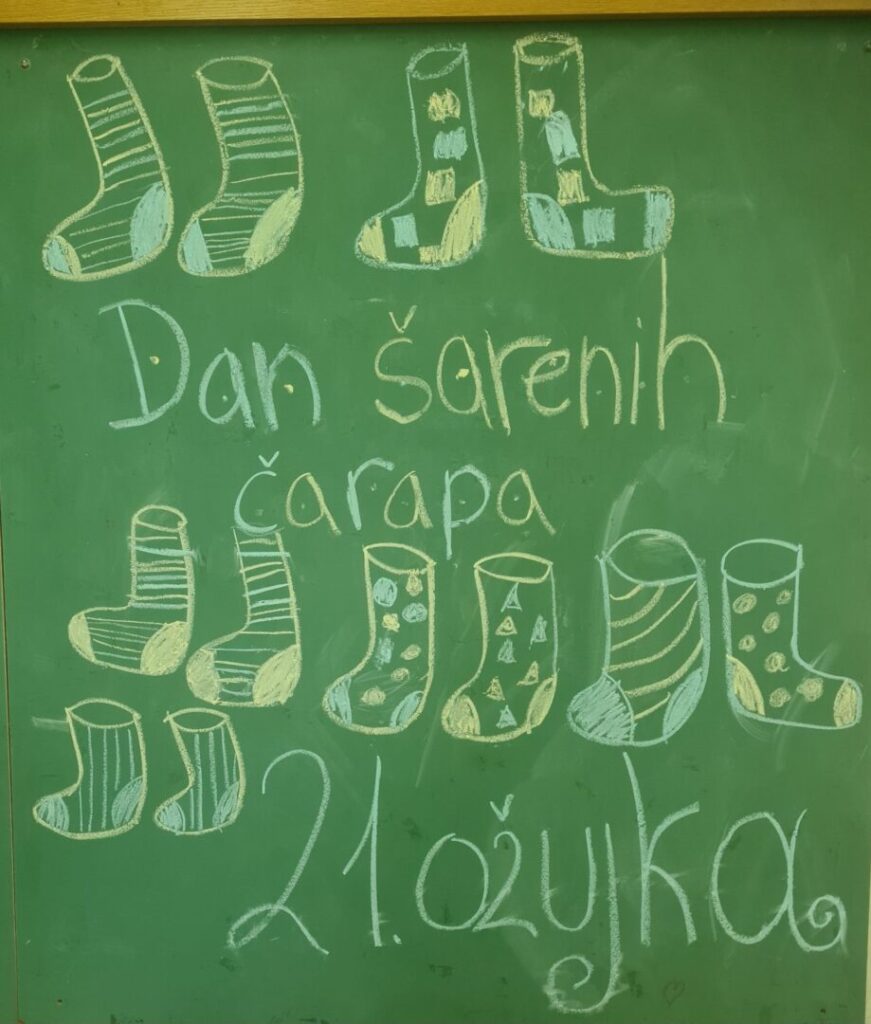 Dan šarenih
čarapa
21. ožujka